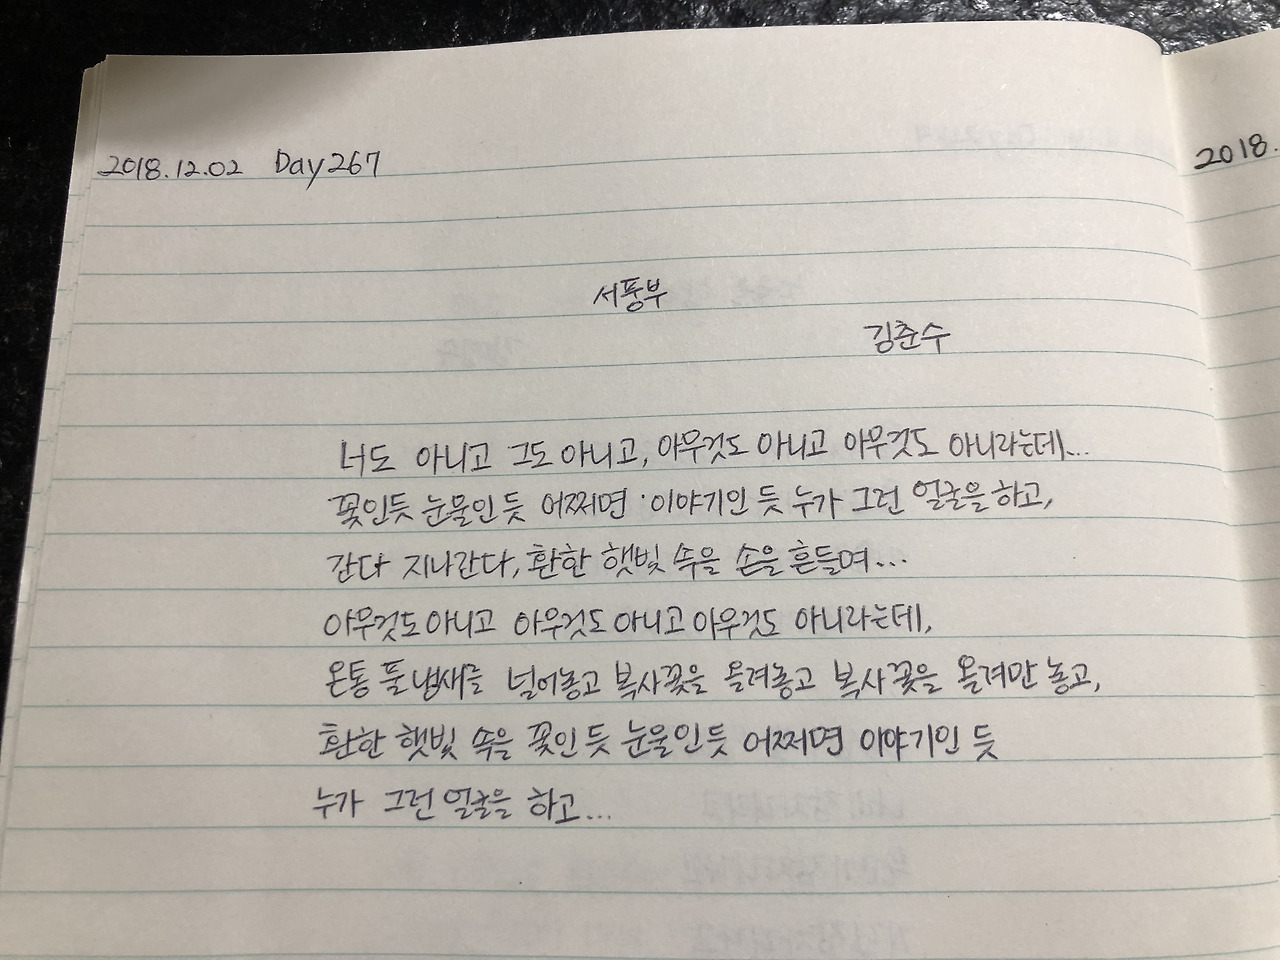 2018.12.02 Day 267
서풍부
김춘수
너도 아니고 그도 아니고, 아무것도 아니고 아무것도 아니라는데...
꽃인듯 눈물인 듯 어쩌면 이야기인 듯 누가 그런 얼굴을 하고,
간다 지나간다, 환한 햇빛 속을 손을 흔들며...
아무것도 아니고 아무것도 아니고 아무것도 아니라는데,
온통 풀냄새를 널어놓고 복사꽃을 올려놓고 복사꽃을 올려만 놓고,
환한 햇빛 속을 꽃인 듯 눈물인 듯 어쩌면 이야기인 듯
누가 그런 얼굴을 하고...
2018.